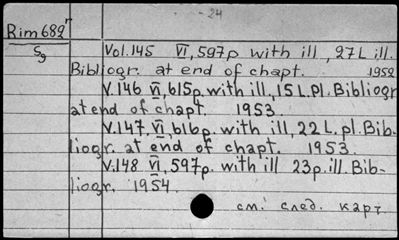 - 24
Rim 682ʳ
Sg
Vol.145 VI, 597p with ill, 27L ill.
Bibliogr. at end of chapt. 1952
V.146 VI, 615p. with ill, 15L.Pl. Bibliogr
at end of chapt. 1953.
V.147, VI, 616p. with ill, 22L. pl. Bib-
liogr. at end of chapt. 1953.
V.148 VI, 597p. with ill 23p. ill. Bib-
liogr. 1954.
см. след. карт